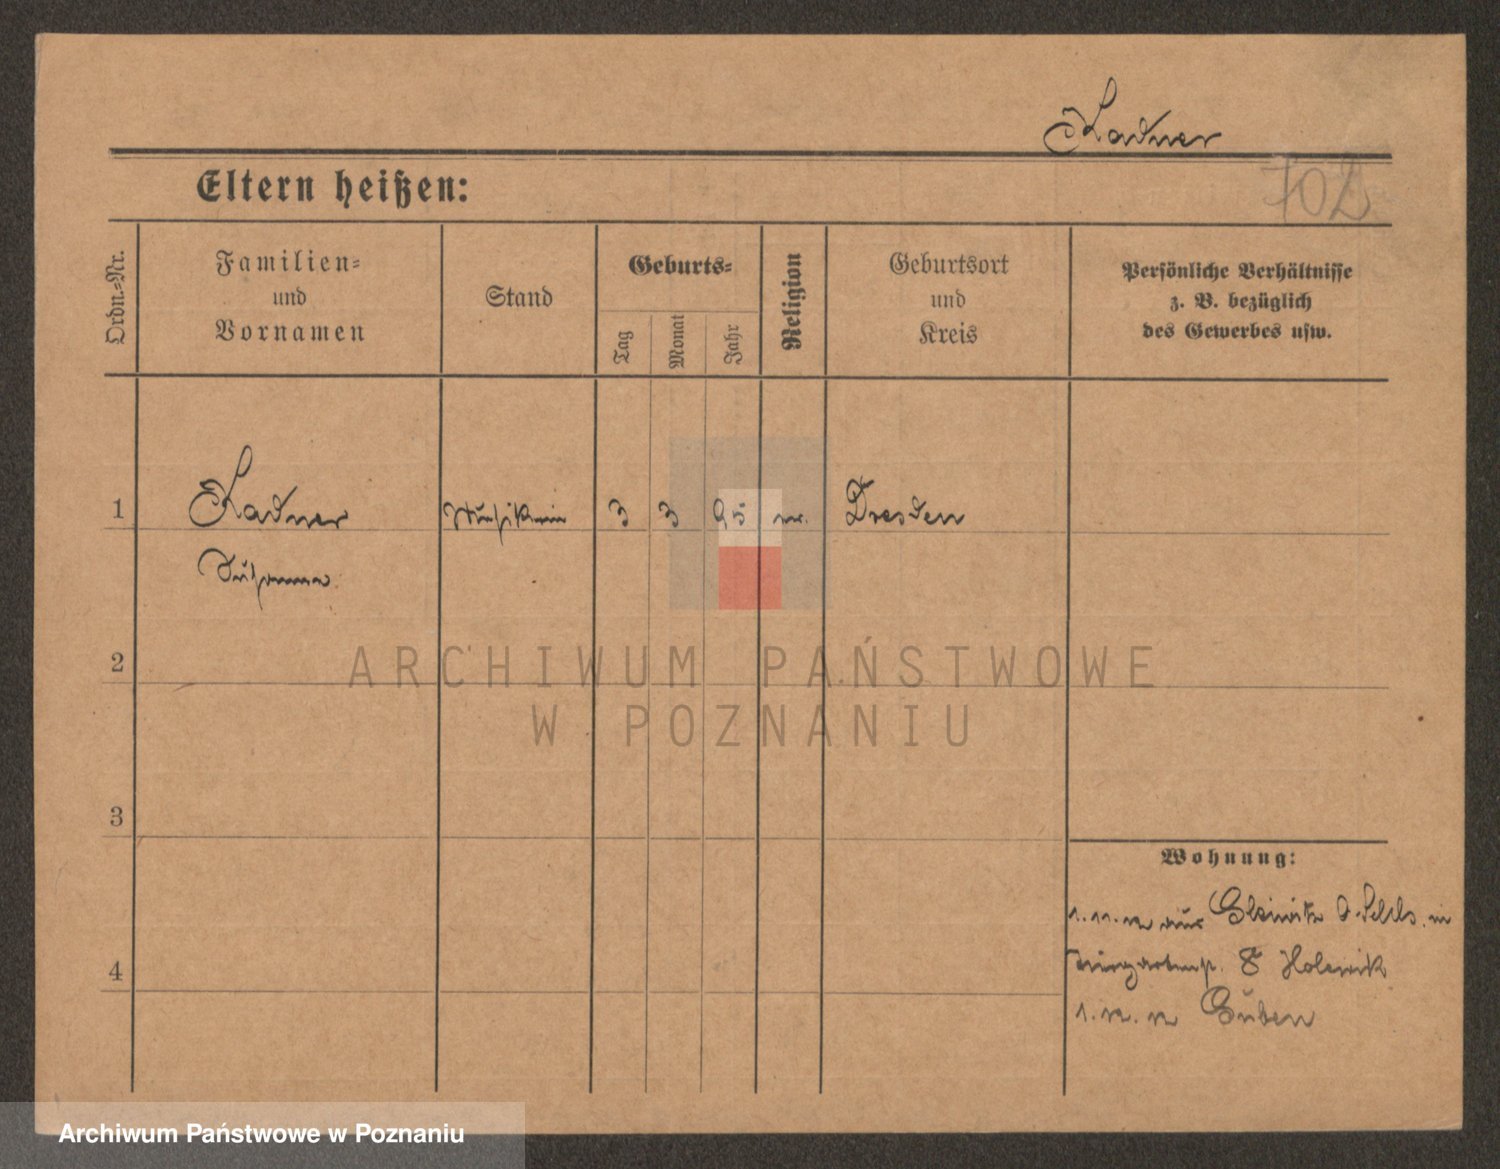 Kadner
702
Eltern heißen:
Ordn.-Nr.
Familien-
und
Vornamen
Stand
Geburts-
Tag
Monat
Jahr
Religion
Geburtsort
und
Kreis
Persönliche Verhältnisse
z. B. bezüglich
des Gewerbes usw.
1
Kadner
Musikerin
3
3
95
Dresden
Susanna
2
3
4
Wohnung:
aus Gleiwitz O.Schls. in
8 Holewik
Guben
ARCHIWUM PAŃSTWOWE
W POZNANIU
Archiwum Państwowe w Poznaniu